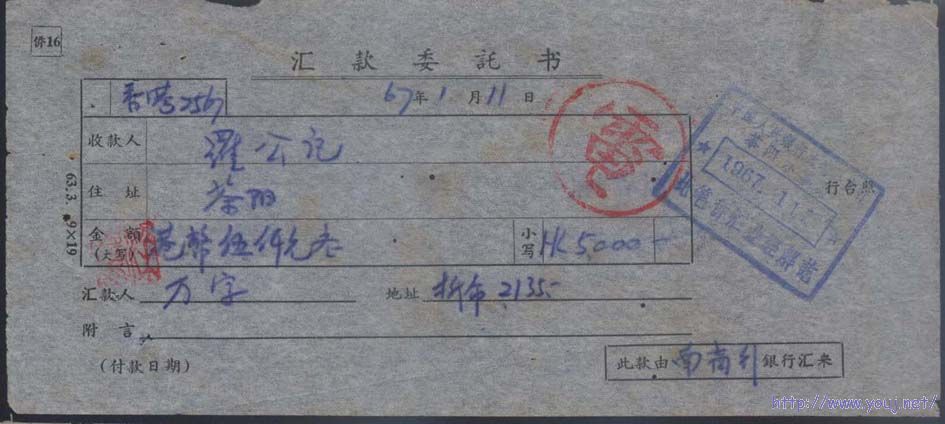 侨16
汇款委託书
香港2567
67年1月11日
收款人 羅公记
住址
金额(大写) 港幣伍仟元正
小写 HK 5000-
汇款人 万字 地址 折布 2135-
附言
(付款日期)
此款由南商行銀行汇来
63.3. 9×19
電
1967.1.1
照台行
http://www.youj.net/